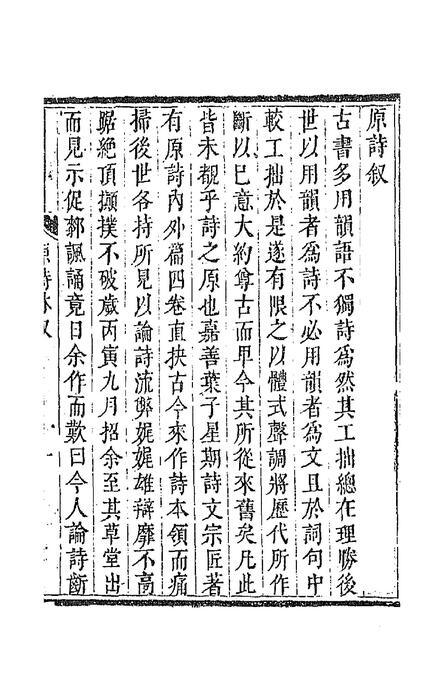 原詩叙
古書多用韻語不獨詩爲然其工拙總在理勝後
世以用韻者爲詩不必用韻者爲文且於詞句中
較工拙於是遂有限之以體式聲調將歷代所作
斷以已意大約尊古而卑今其所從來舊矣凡此
皆未覩乎詩之原也嘉善葉子星期詩文宗匠著
有原詩內外篇四卷直抉古今來作詩本領而痛
掃後世各持所見以論詩流弊娓娓雄辯靡不高
踞絶頂攧撲不破歲丙寅九月招余至其草堂出
而見示促郀諷誦竟日余作而歎曰今人論詩斷
原詩 叙
一